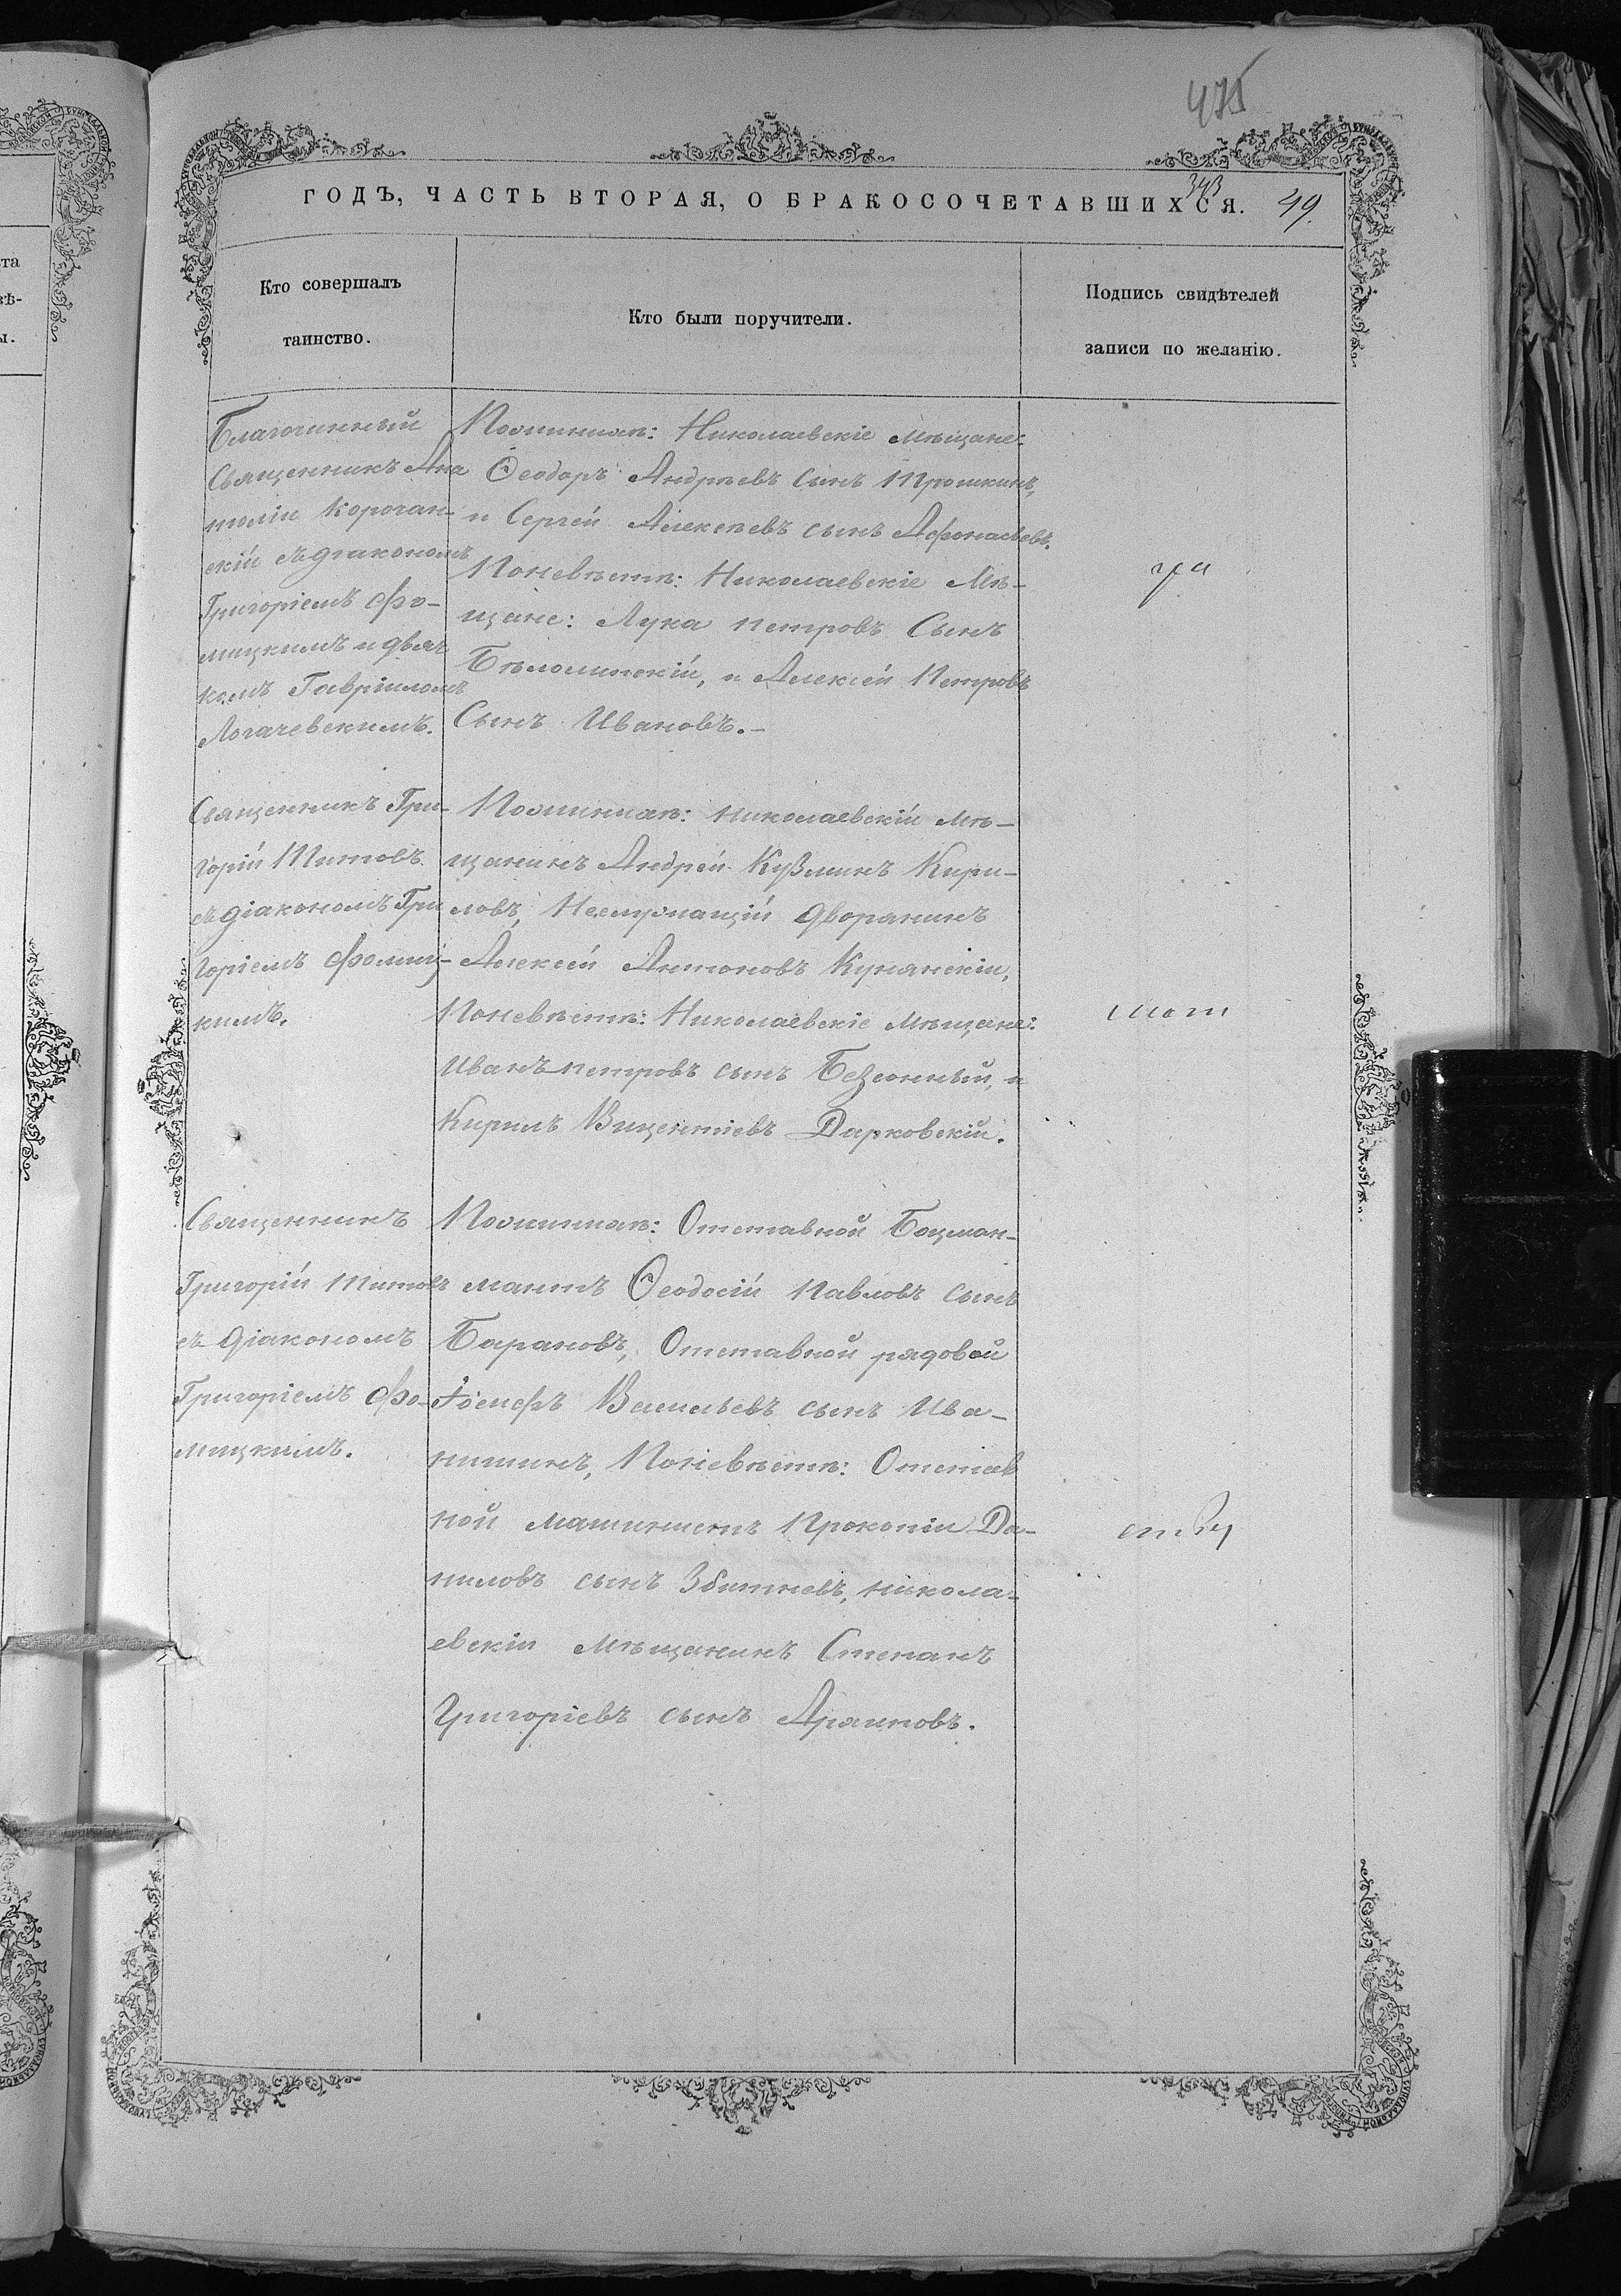 475
343
ГОДЪ, ЧАСТЬ ВТОРАЯ, О БРАКОСОЧЕТАВШИХСЯ. 49.
Кто совершалъ
таинство.
Кто были поручители.
Подпись свидѣтелей
записи по желанію.
Благочинный
Священникъ Ана
толій Корочан-
скій съ діакономъ
Григоріемъ Фо-
мицкимъ и дьяч
комъ Гавріиломъ
Логачевскимъ.
По женихѣ: Николаевскіе мѣщане:
Ѳеодоръ Андреевъ сынъ Трошкинъ,
и Сергѣй Алексѣевъ сынъ Афонасьевъ.
По невѣстѣ: Николаевскіе Мѣ-
щане: Лука Петровъ Сынъ
и Алексѣй Петровъ
Сынъ Ивановъ.-
Священникъ Гри-
горій Титовъ
съ діакономъ Гри
горіемъ Фомиц-
кимъ.
По женихѣ: Николаевскій Мѣ-
щанинъ Андрей Кузминъ Кири-
ловъ, Неслужащій дворянинъ
Алексѣй Антоновъ
По невѣстѣ: Николаевскіе Мѣщане:
Иванъ Петровъ сынъ и
Кирилъ Вицентіевъ Дарковскій.
Священникъ
Григорій Титовъ
съ діакономъ
Григоріемъ Фо-
мицкимъ.
По женихѣ: Отставной Боцман-
матъ Ѳеодосій Павловъ сынъ
Барановъ, Отставной рядовой
Іосифъ Васильевъ сынъ Ива-
нишинъ, По невѣстѣ: Отстав
ной машинистъ Прокопій Да-
ниловъ сынъ Збитневъ, Никола-
евскій Мѣщанинъ Степанъ
Григоріевъ сынъ